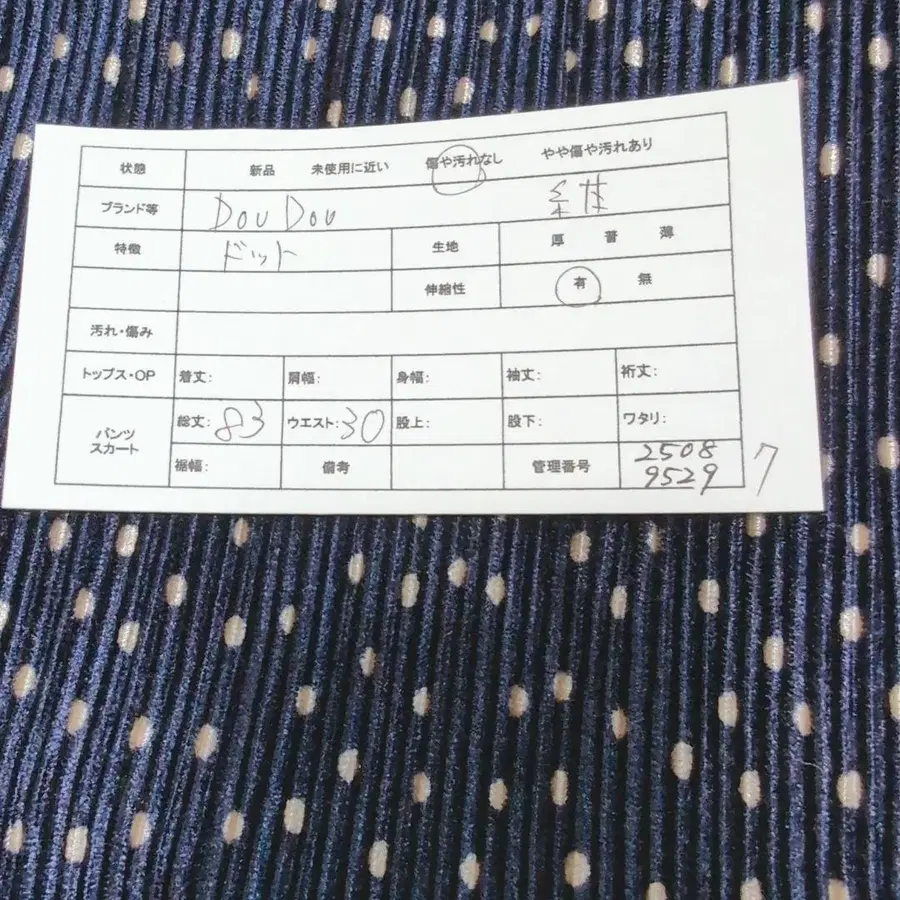 状態 新品 未使用に近い 傷や汚れなし やや傷や汚れあり
ブランド等 DouDou
特徴 ドット 生地 厚 普 薄
伸縮性 有 無
汚れ・傷み
トップス・OP 着丈: 肩幅: 身幅: 袖丈: 裄丈:
パンツ スカート 総丈: 83 ウエスト: 30 股上: 股下: ワタリ:
裾幅: 備考 管理番号 2508 9529 7